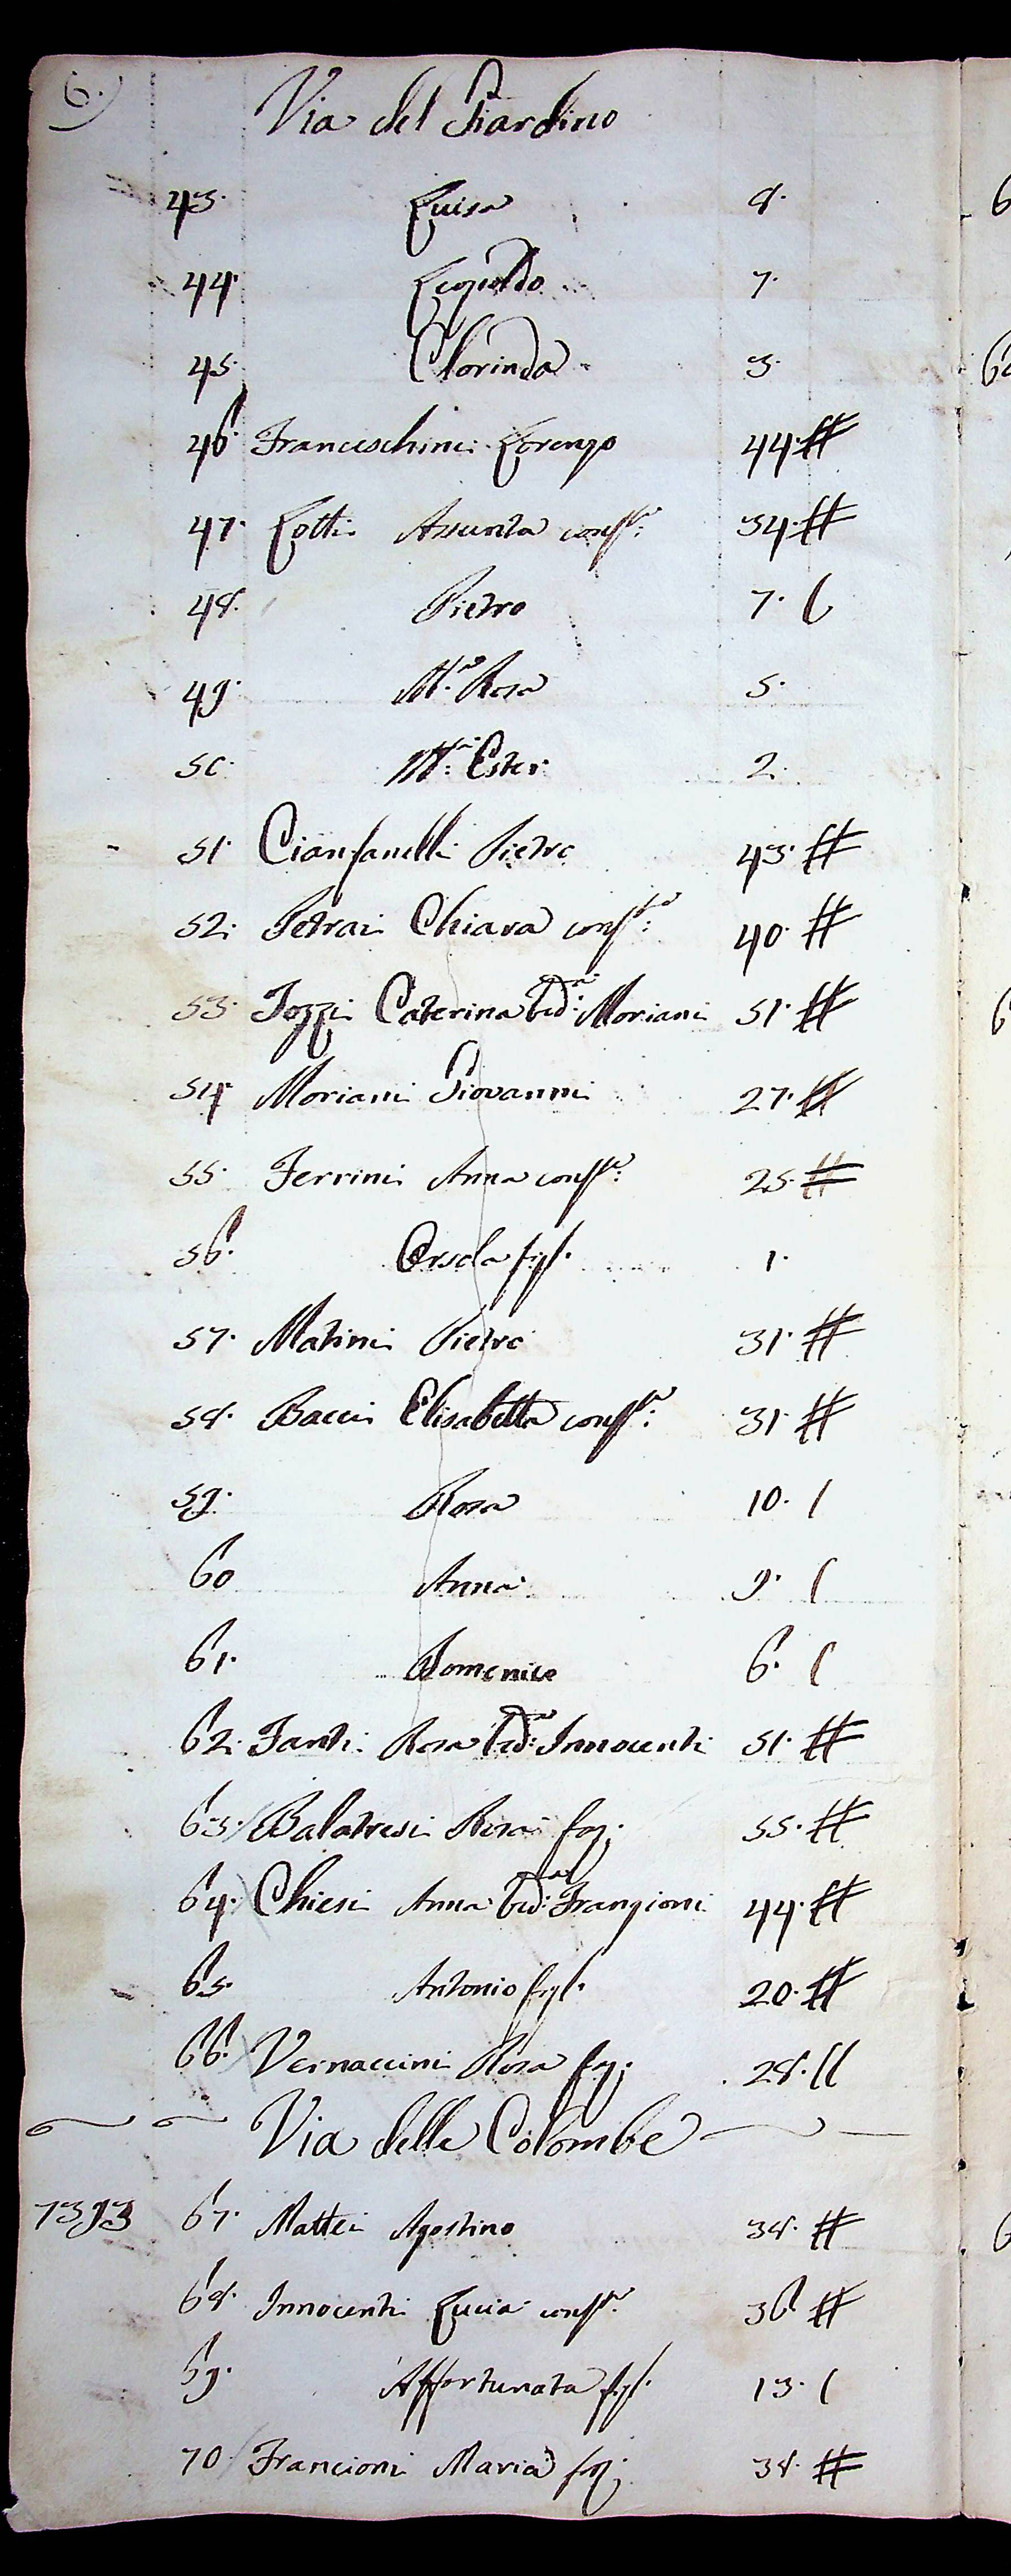 6.)
Via del Giardino
43. Luisa 8.
44. Leopoldo 7.
45. Clorinda 3.
46. Franceschini Lorenzo 44.
47. Lotti Assunta conste: 34.
48. Pietro 7.
49. Ma. Rosa 5.
50. Ma: Ester 2.
51. Cianfanelli Pietro 43.
52. Petrai Chiara conste: 40.
53. Jozzi Caterina Veda: Moriani 51.
54. Moriani Giovanni 27.
55. Ferrini Anna conste: 25.
56. Orsola figl. 1.
57. Matini Pietro 31.
58. Bacci Elisabetta conste: 31.
59. Rosa 10.
60 Anna 9.
61. Domenico 6.
62. Fanti Rosa Veda: Innocenti 51.
63. Balatresi Rosa 55.
64. Chiesi Anna Veda: Frangioni 44.
65. Antonio figl. 20.
66. Vernaccini Rosa 28.
Via delle Colombe
7393 67. Mattei Agostino 38.
68. Innocenti Lucia conste. 36
69. Affortunata figl. 13.
70. Francioni Maria 38.